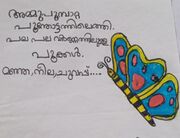 അമ്മുപൂമ്പാറ്റ
പൂന്തോട്ടത്തിലെത്തി.
പല പല വർണ്ണത്തിലുള്ള
പൂക്കൾ.
മഞ്ഞ,നീല,ചുവപ്പ്....